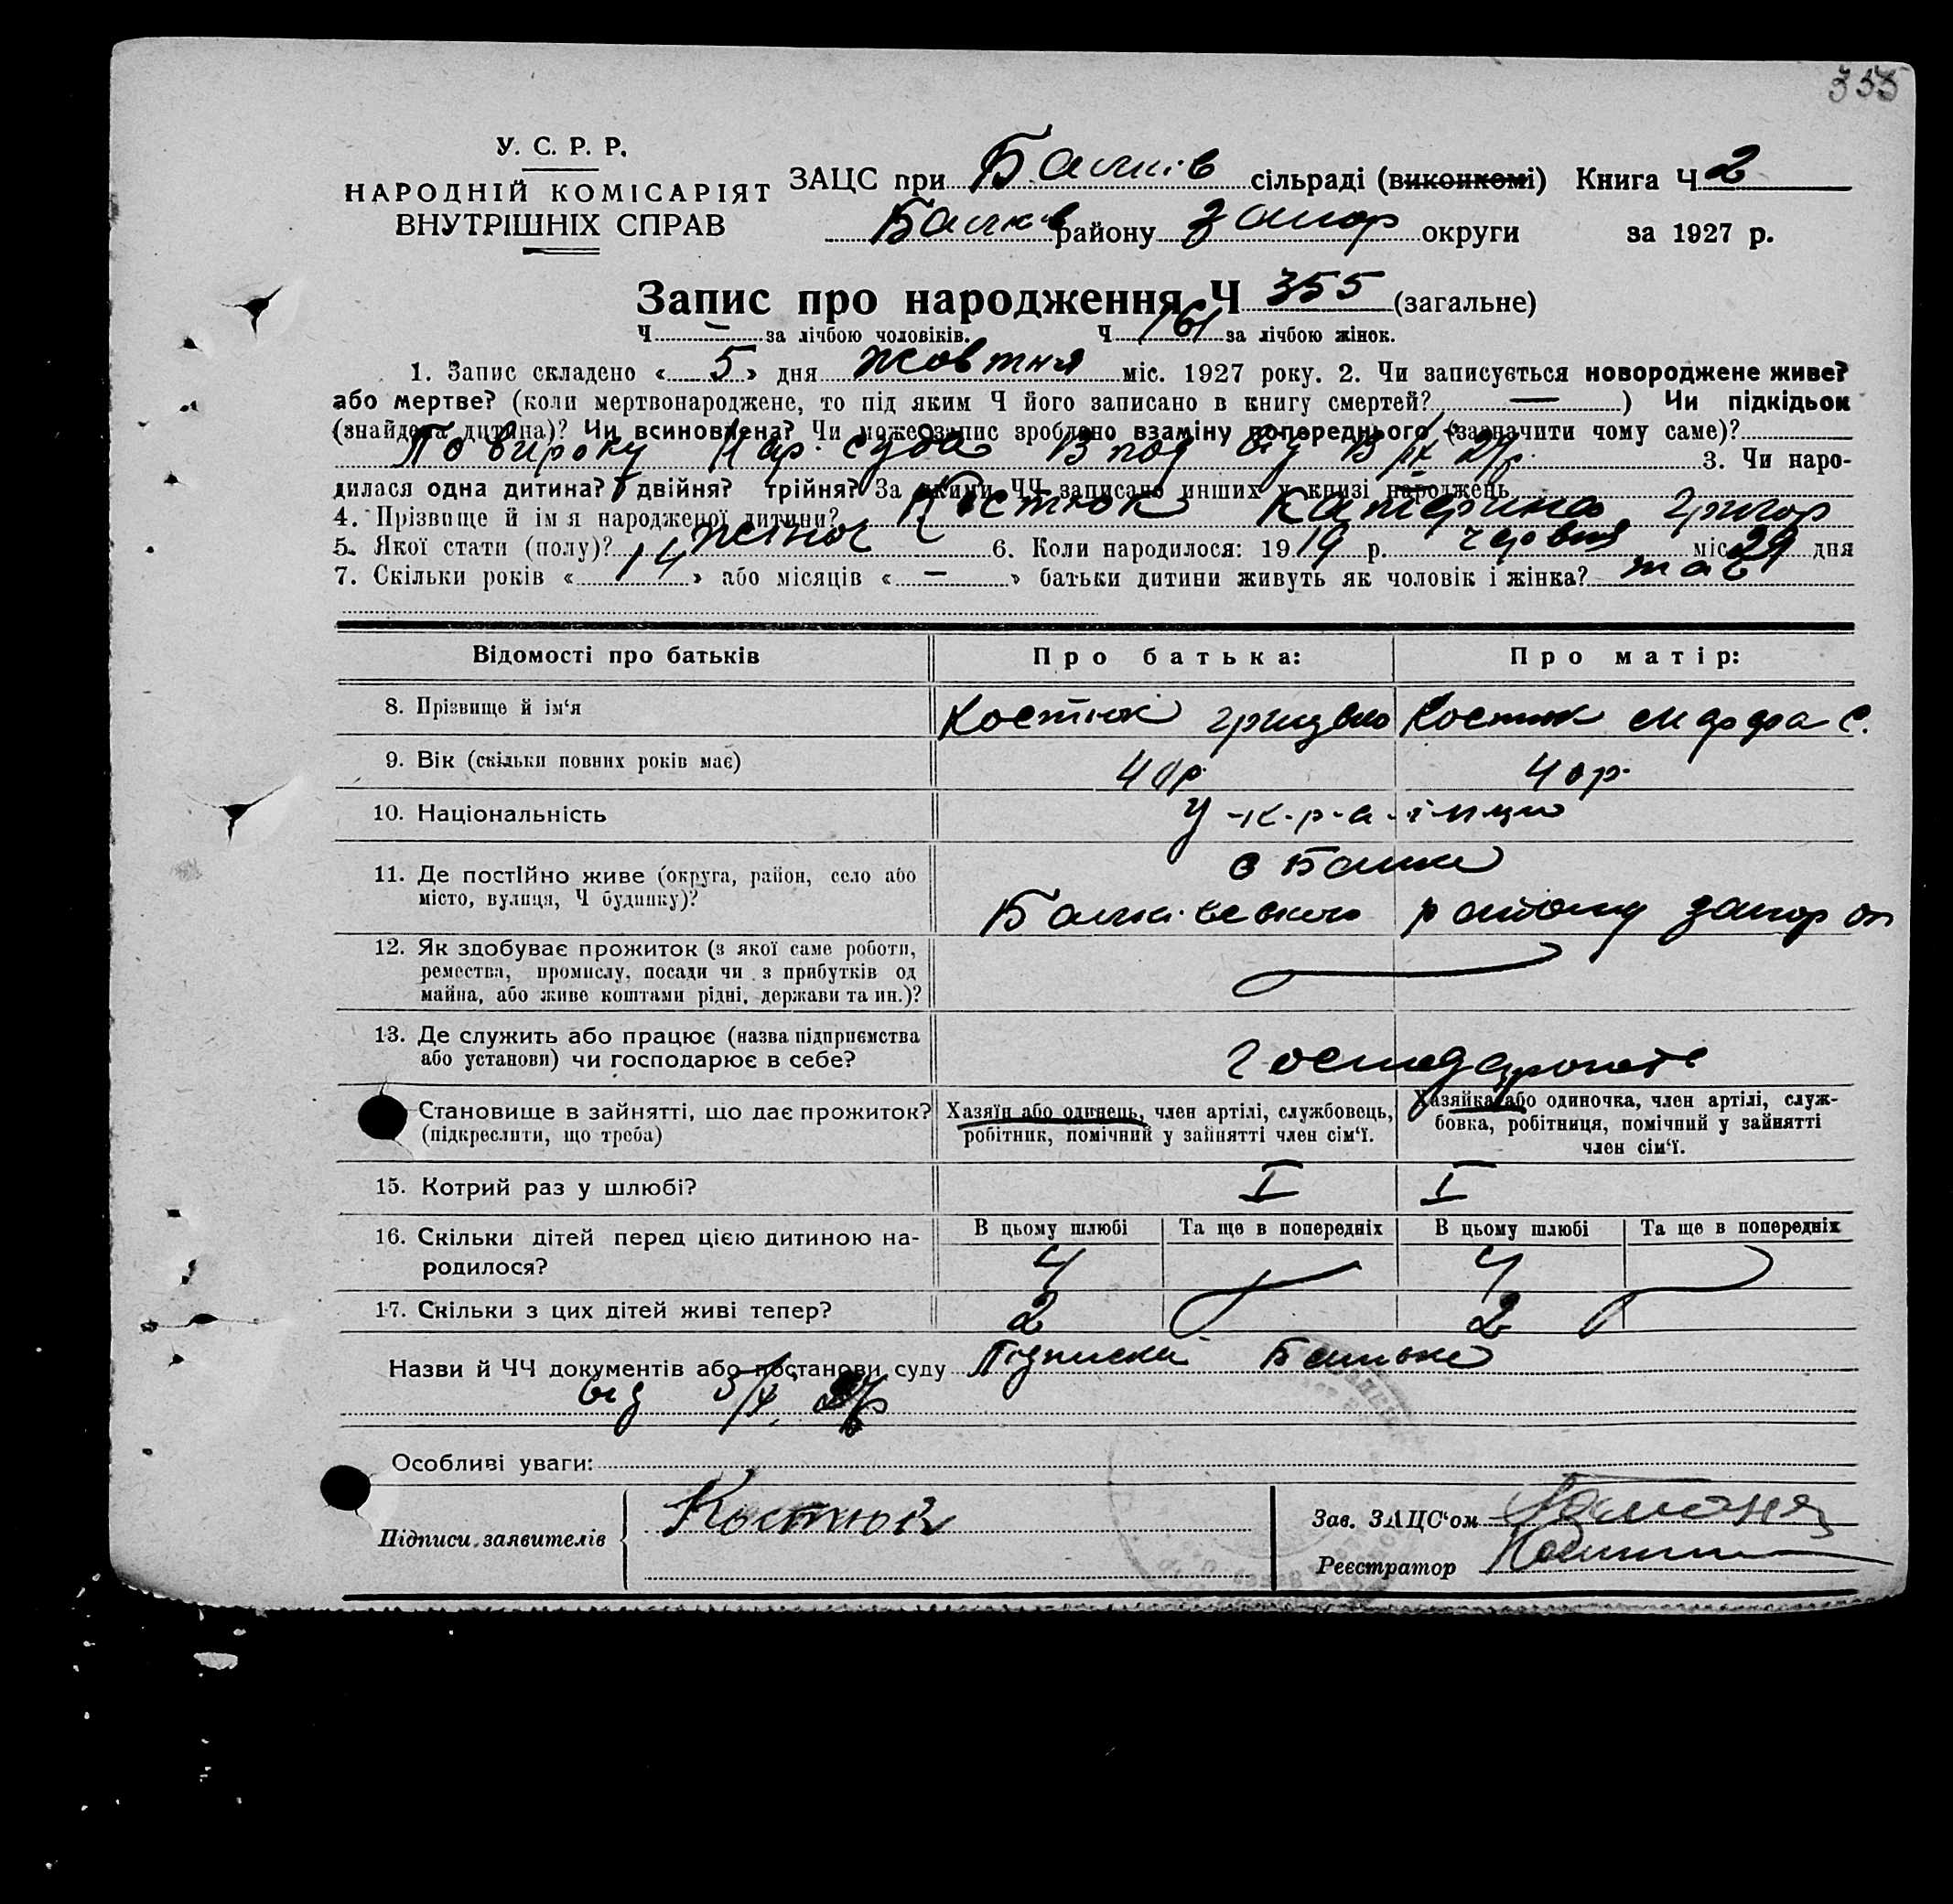 355
У. С. Р. Р.
НАРОДНІЙ КОМІСАРІЯТ
ВНУТРІШНІХ СПРАВ
ЗАЦС при Балків сільраді (виконкомі) Книга Ч 2
Балків району Запор округи за 1927 р.
Запис про народження Ч 355 (загальне)
Ч — за лічбою чоловіків. Ч 161 за лічбою жінок.
1. Запис складено « 5 » дня жовтня міс. 1927 року. 2. Чи записується новороджене живе?
або мертве? (коли мертвонароджене, то під яким Ч його записано в книгу смертей? — ) Чи підкідьок
(знайдена дитина)? Чи всиновлена? Чи може запис зроблено взаміну попереднього (зазначити чому саме)?
По вироку Нар. суда від 13/IX 27р. 3. Чи наро-
дилася одна дитина? двійня? трійня? За якими ЧЧ записано инших у книзі народжень
4. Прізвище й ім я народженої дитини? Костюк Катерина Григор
5. Якої стати (полу)? жіноч 6. Коли народилося: 1919 р. червня міс. 29 дня
7. Скільки років « 14 » або місяців « — » батьки дитини живуть як чоловік і жінка? так
Відомості про батьків Про батька: Про матір:
8. Прізвище й ім‘я Костюк Костюк Марфа С.
9. Вік (скільки повних років має) 40р. 40р.
10. Національність У-к-р-а-інци
11. Де постійно живе (округа, район, село або
місто, вулиця, Ч будинку)? с Балки
Балківського району Запор ок
12. Як здобуває прожиток (з якої саме роботи,
ремества, промислу, посади чи з прибутків од
майна, або живе коштами рідні, держави та ин.)?
13. Де служить або працює (назва підприємства
або установи) чи господарює в себе?
Становище в зайнятті, що дає прожиток?
(підкреслити, що треба)
Хазяїн або одинець, член артілі, службовець,
робітник, помічний у зайнятті член сім‘ї.
Хазяйка або одиночка, член артілі, служ-
бовка, робітниця, помічний у зайнятті
член сім‘ї.
15. Котрий раз у шлюбі? I I
16. Скільки дітей перед цією дитиною на-
родилося?
В цьому шлюбі Та ще в попередніх В цьому шлюбі Та ще в попередніх
4 4
17. Скільки з цих дітей живі тепер? 2 2
Назви й ЧЧ документів або постанови суду Підписка Батька
від 5/X 27р
Особливі уваги:
Підписи заявителів Костюк
Зав. ЗАЦС‘ом
Реєстратор